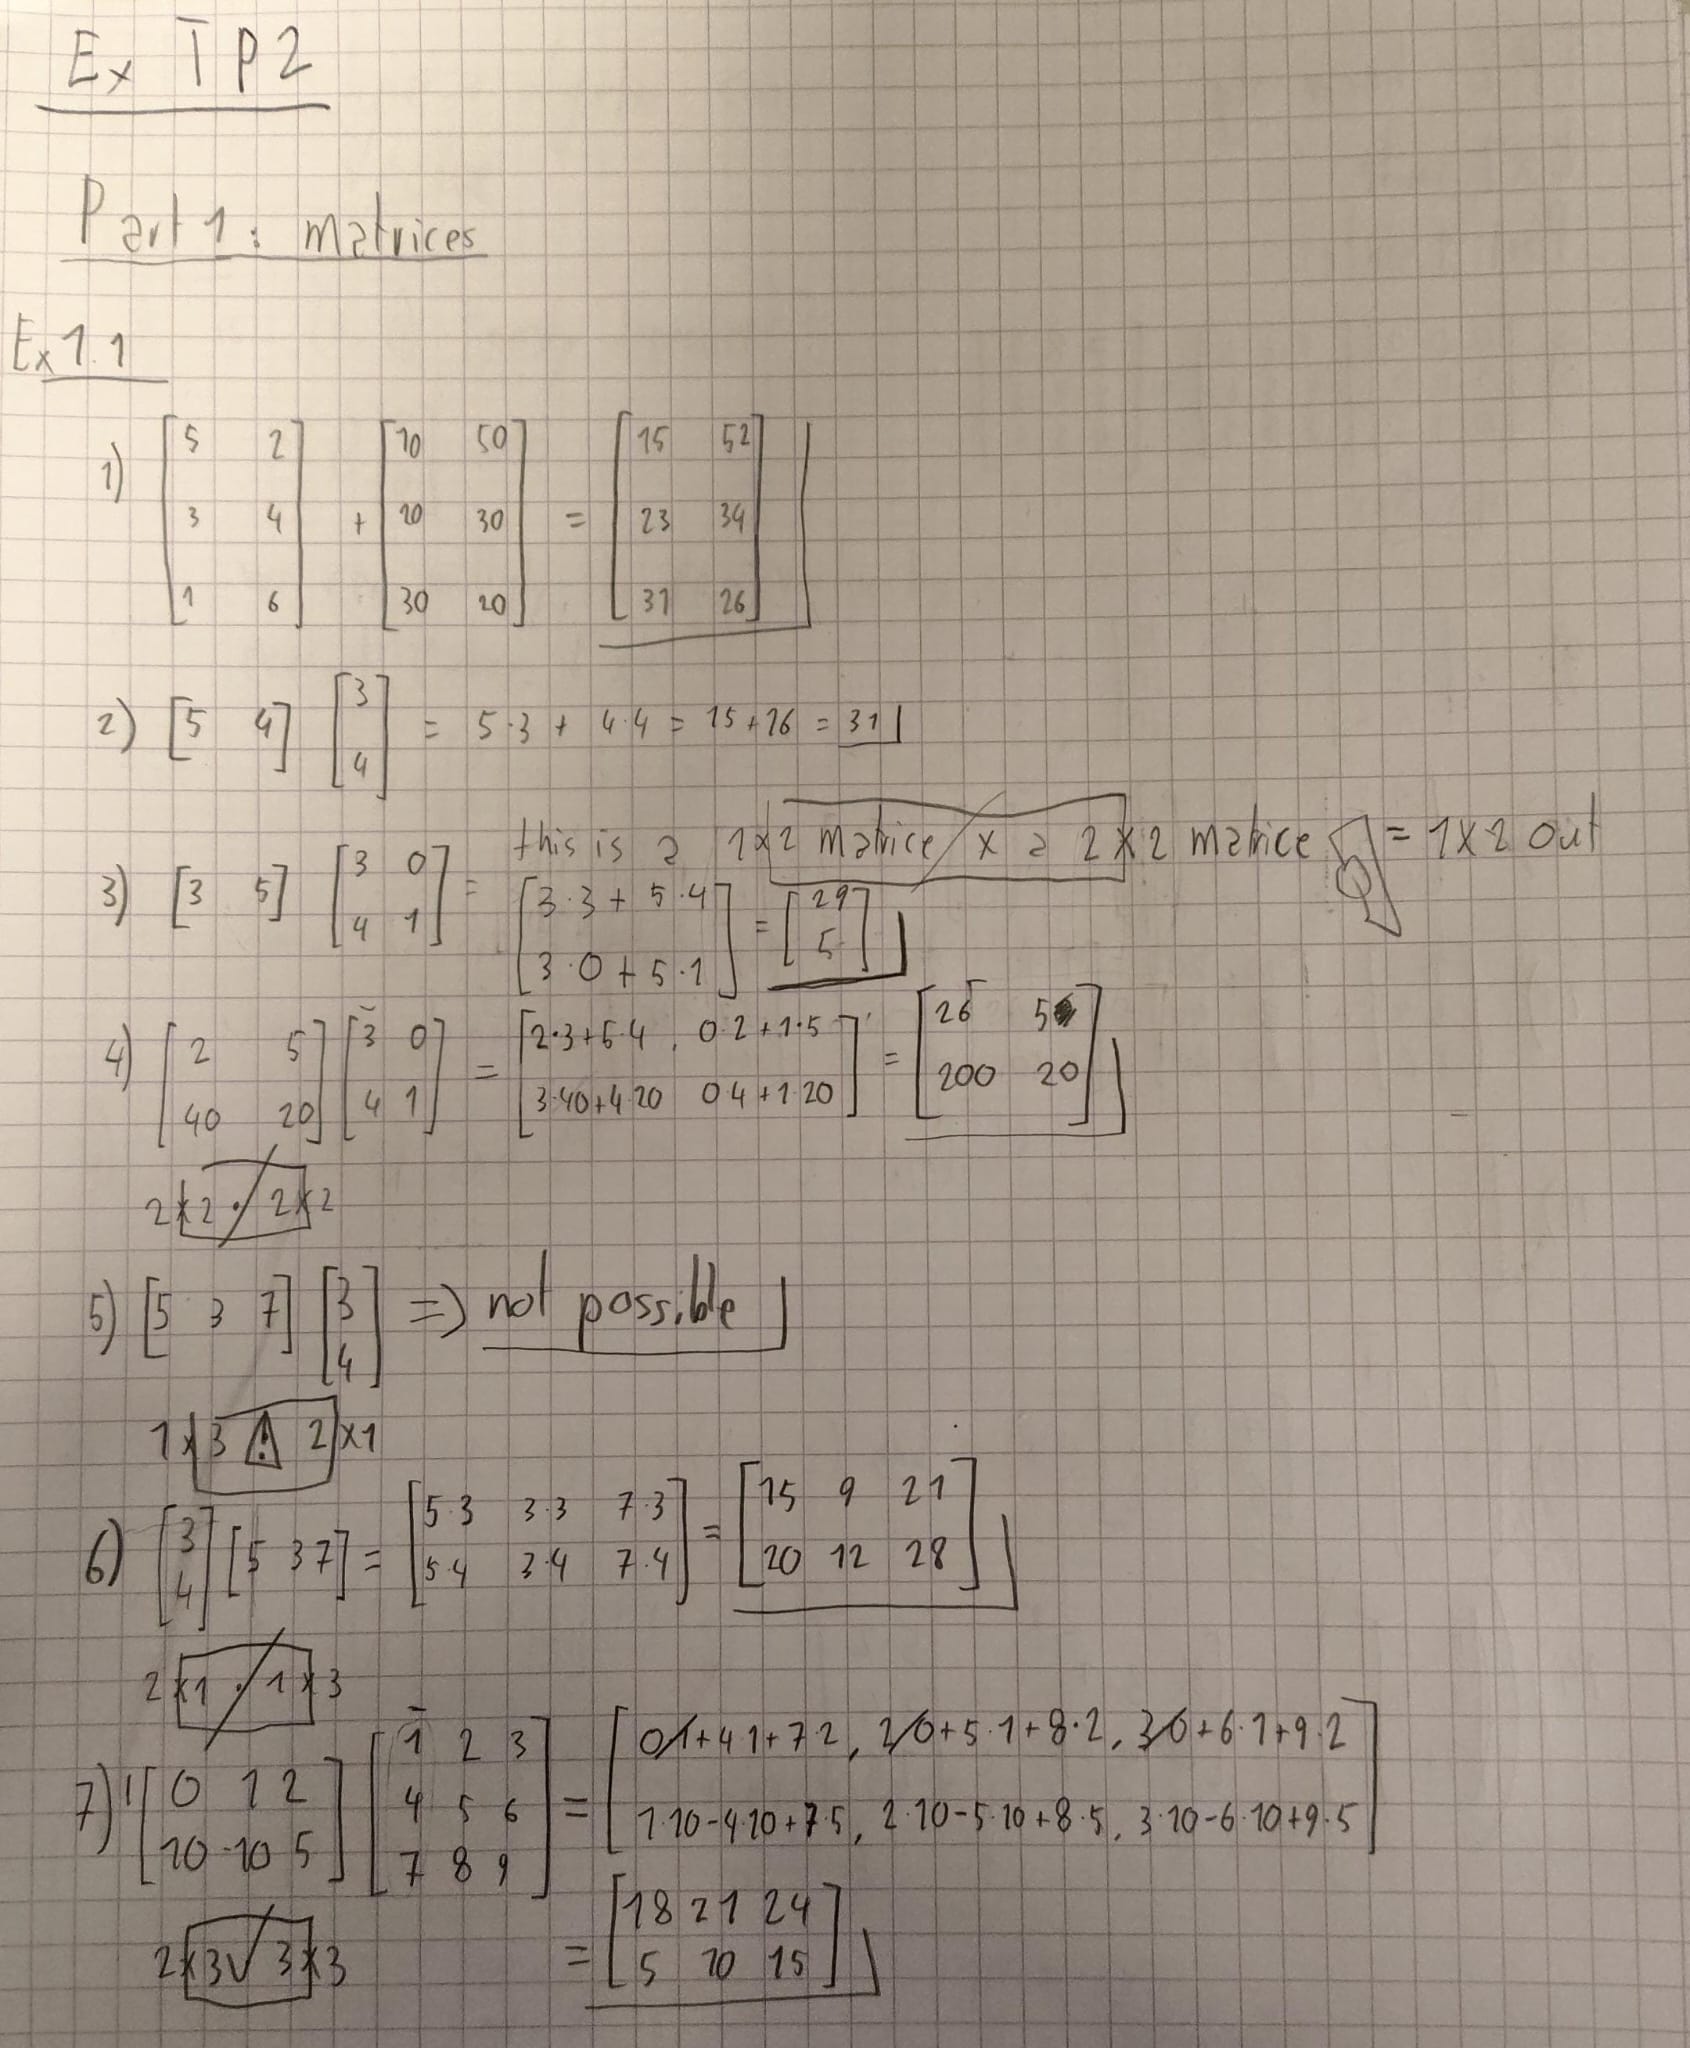 Ex TP2
Part 1: matrices
Ex 1.1
1) [5 2; 3 4; 1 6] + [10 50; 20 30; 30 20] = [15 52; 23 34; 31 26]
2) [5 4] [3; 4] = 5·3 + 4·4 = 15+16 = 31
this is a 1x2 matrice x a 2x2 matrice = 1x2 out
3) [3 5] [3 0; 4 1] = [3·3 + 5·4; 3·0 + 5·1] = [29; 5]
4) [2 5; 40 20] [3 0; 4 1] = [2·3+5·4, 0·2+1·5; 3·40+4·20 0·4+1·20] = [26 5; 200 20]
2x2 · 2x2
5) [5 3 7] [3; 4] => not possible
1x3 ⚠ 2x1
6) [3; 4] [5 3 7] = [5·3 3·3 7·3; 5·4 3·4 7·4] = [15 9 21; 20 12 28]
2x1 · 1x3
7) [0 1 2; 10 -10 5] [1 2 3; 4 5 6; 7 8 9] = [0·1+4·1+7·2, 2·0+5·1+8·2, 3·0+6·1+9·2; 1·10-4·10+7·5, 2·10-5·10+8·5, 3·10-6·10+9·5]
2x3 ✓ 3x3
= [18 21 24; 5 10 15]